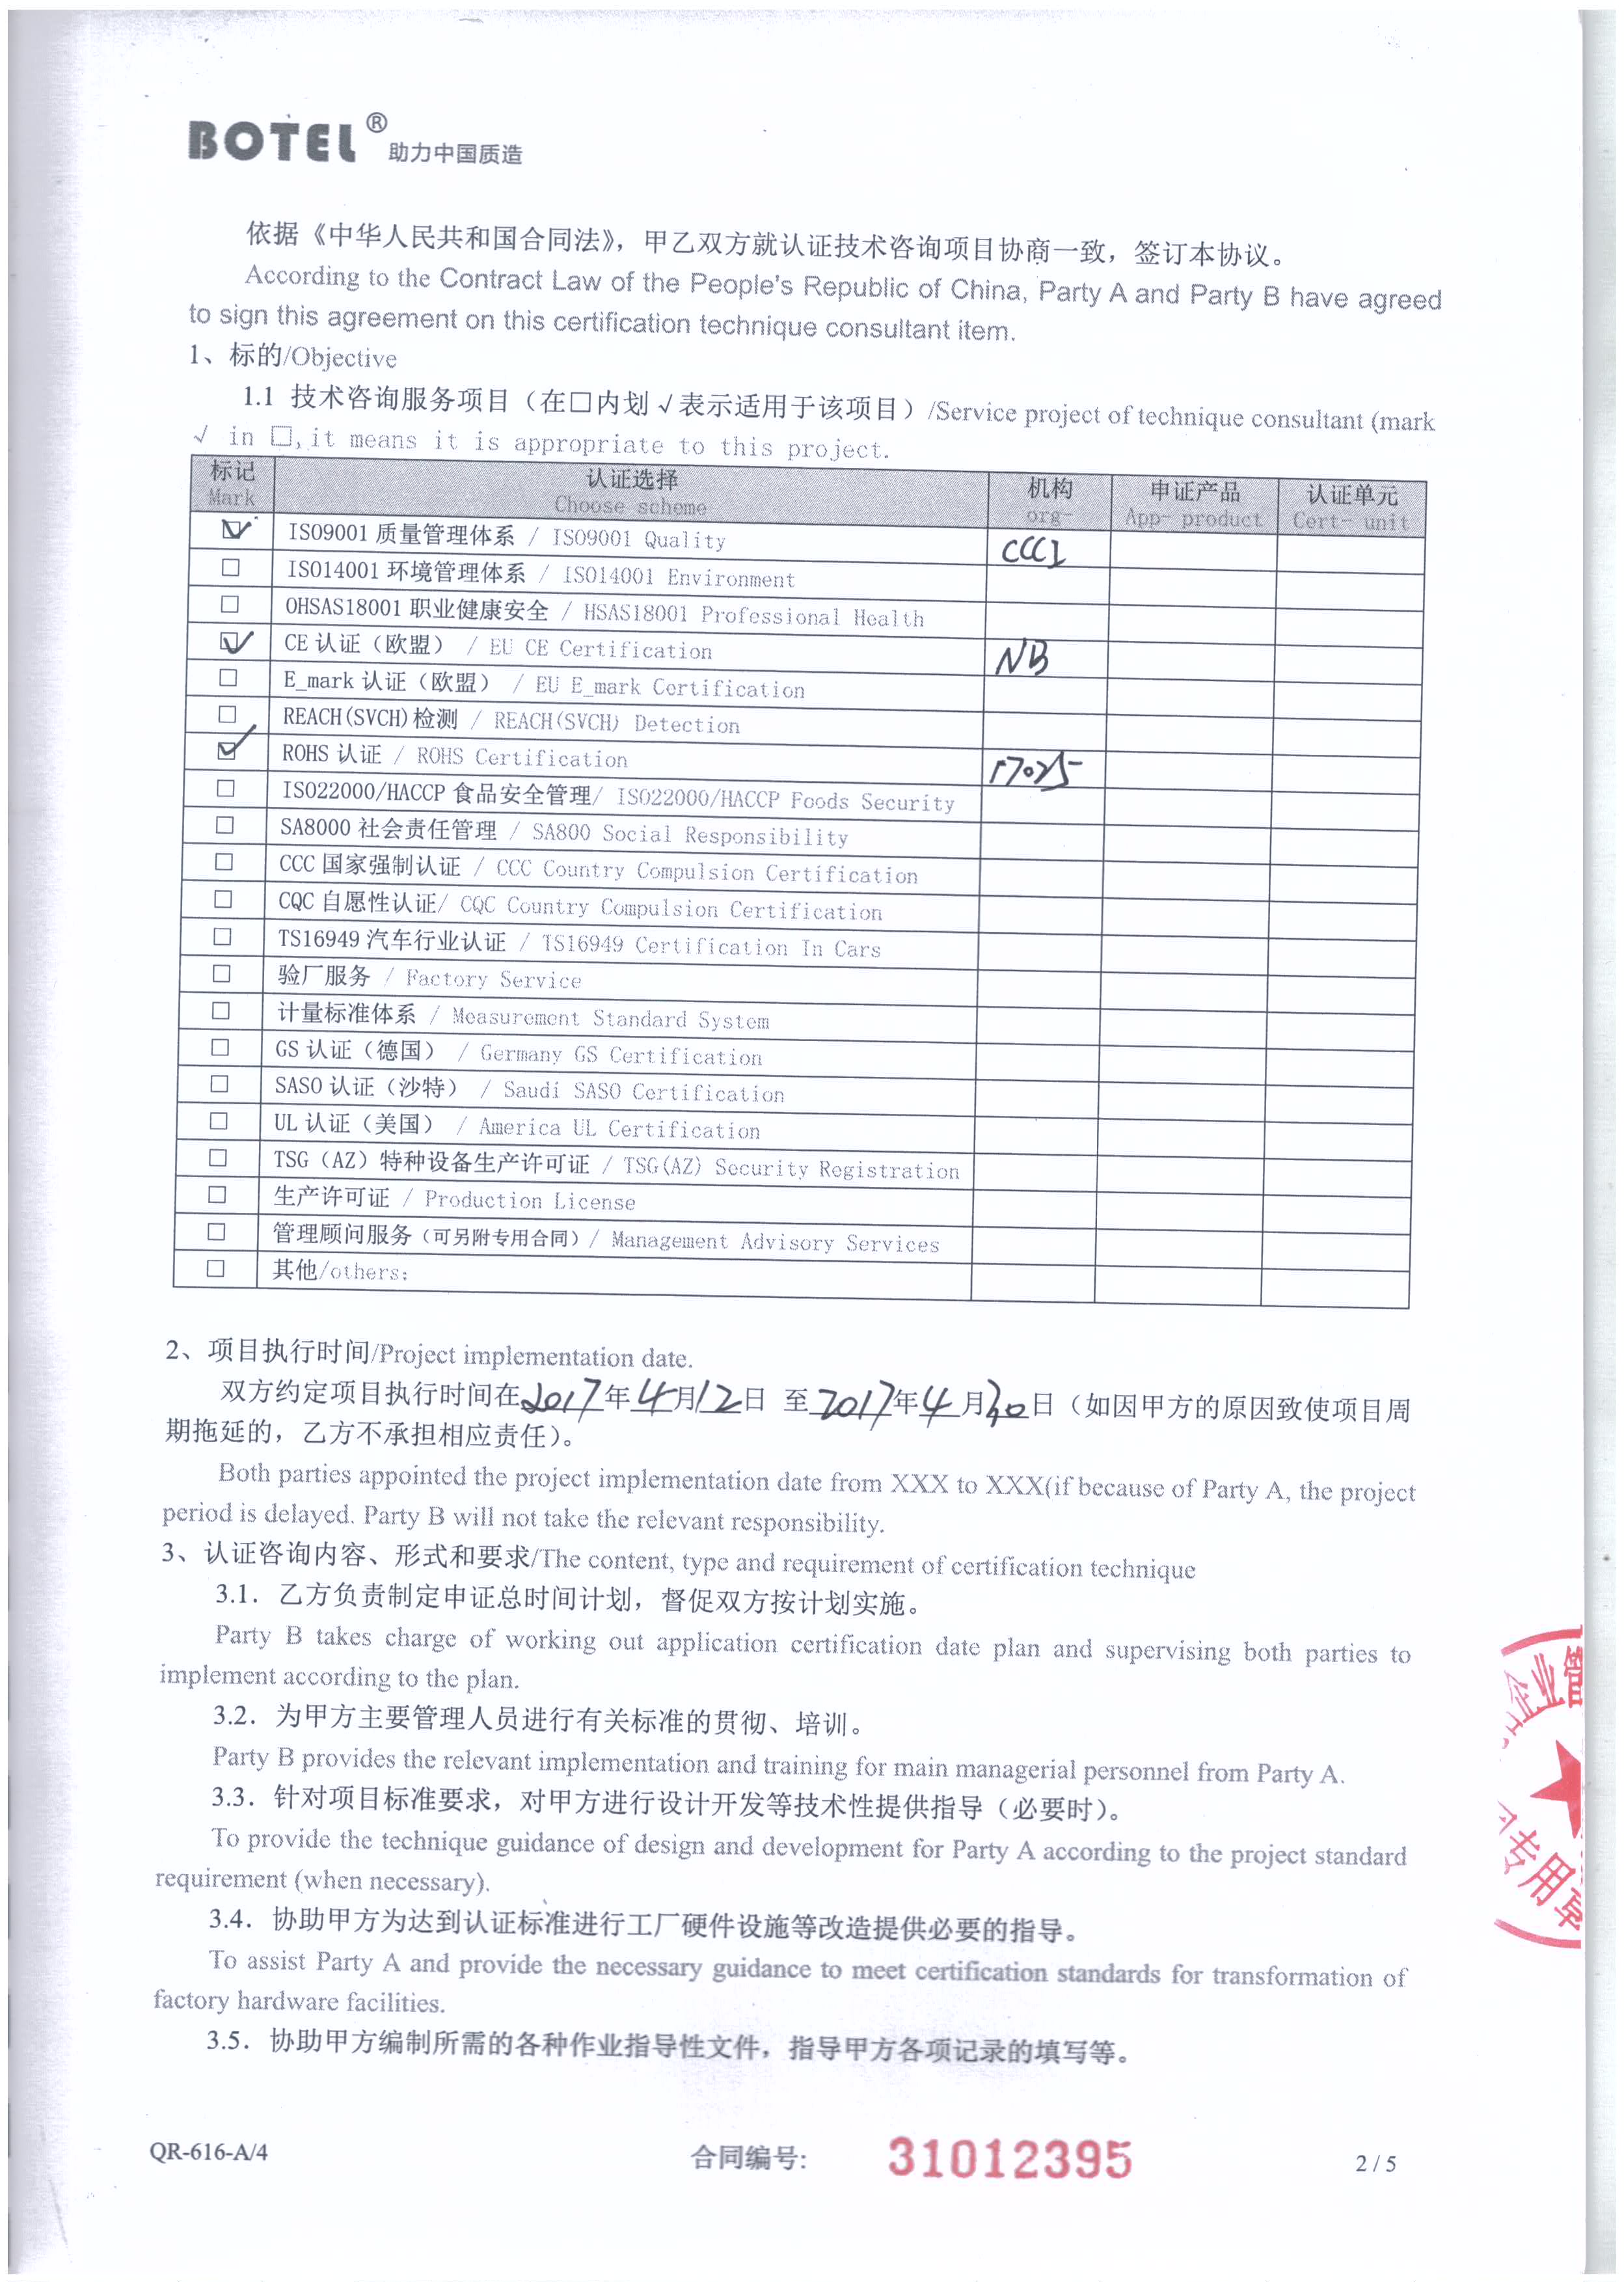 BOTEL® 助力中国质造
依据《中华人民共和国合同法》，甲乙双方就认证技术咨询项目协商一致，签订本协议。
According to the Contract Law of the People's Republic of China, Party A and Party B have agreed
to sign this agreement on this certification technique consultant item.
1、标的/Objective
1.1 技术咨询服务项目（在□内划√表示适用于该项目）/Service project of technique consultant (mark
√ in □,it means it is appropriate to this project.
标记 认证选择 机构 申证产品 认证单元
Mark Choose scheme org- App- product Cert- unit
☑ ISO9001 质量管理体系 / ISO9001 Quality CCCI
□ ISO14001 环境管理体系 / ISO14001 Environment
□ OHSAS18001 职业健康安全 / HSAS18001 Professional Health
☑ CE 认证（欧盟） / EU CE Certification NB
□ E_mark 认证（欧盟） / EU E_mark Certification
□ REACH(SVCH)检测 / REACH(SVCH) Detection
☑ ROHS 认证 / ROHS Certification 17025
□ ISO22000/HACCP 食品安全管理/ ISO22000/HACCP Foods Security
□ SA8000 社会责任管理 / SA800 Social Responsibility
□ CCC 国家强制认证 / CCC Country Compulsion Certification
□ CQC 自愿性认证/ CQC Country Compulsion Certification
□ TS16949 汽车行业认证 / TS16949 Certification In Cars
□ 验厂服务 / Factory Service
□ 计量标准体系 / Measurement Standard System
□ GS 认证（德国） / Germany GS Certification
□ SASO 认证（沙特） / Saudi SASO Certification
□ UL 认证（美国） / America UL Certification
□ TSG（AZ）特种设备生产许可证 / TSG(AZ) Security Registration
□ 生产许可证 / Production License
□ 管理顾问服务（可另附专用合同）/ Management Advisory Services
□ 其他/others:
2、项目执行时间/Project implementation date.
双方约定项目执行时间在2017年4月12日 至2017年4月30日（如因甲方的原因致使项目周
期拖延的，乙方不承担相应责任）。
Both parties appointed the project implementation date from XXX to XXX(if because of Party A, the project
period is delayed. Party B will not take the relevant responsibility.
3、认证咨询内容、形式和要求/The content, type and requirement of certification technique
3.1. 乙方负责制定申证总时间计划，督促双方按计划实施。
Party B takes charge of working out application certification date plan and supervising both parties to
implement according to the plan.
3.2. 为甲方主要管理人员进行有关标准的贯彻、培训。
Party B provides the relevant implementation and training for main managerial personnel from Party A.
3.3. 针对项目标准要求，对甲方进行设计开发等技术性提供指导（必要时）。
To provide the technique guidance of design and development for Party A according to the project standard
requirement (when necessary).
3.4. 协助甲方为达到认证标准进行工厂硬件设施等改造提供必要的指导。
To assist Party A and provide the necessary guidance to meet certification standards for transformation of
factory hardware facilities.
3.5. 协助甲方编制所需的各种作业指导性文件，指导甲方各项记录的填写等。
企业管
专用章
QR-616-A/4 合同编号: 31012395 2 / 5